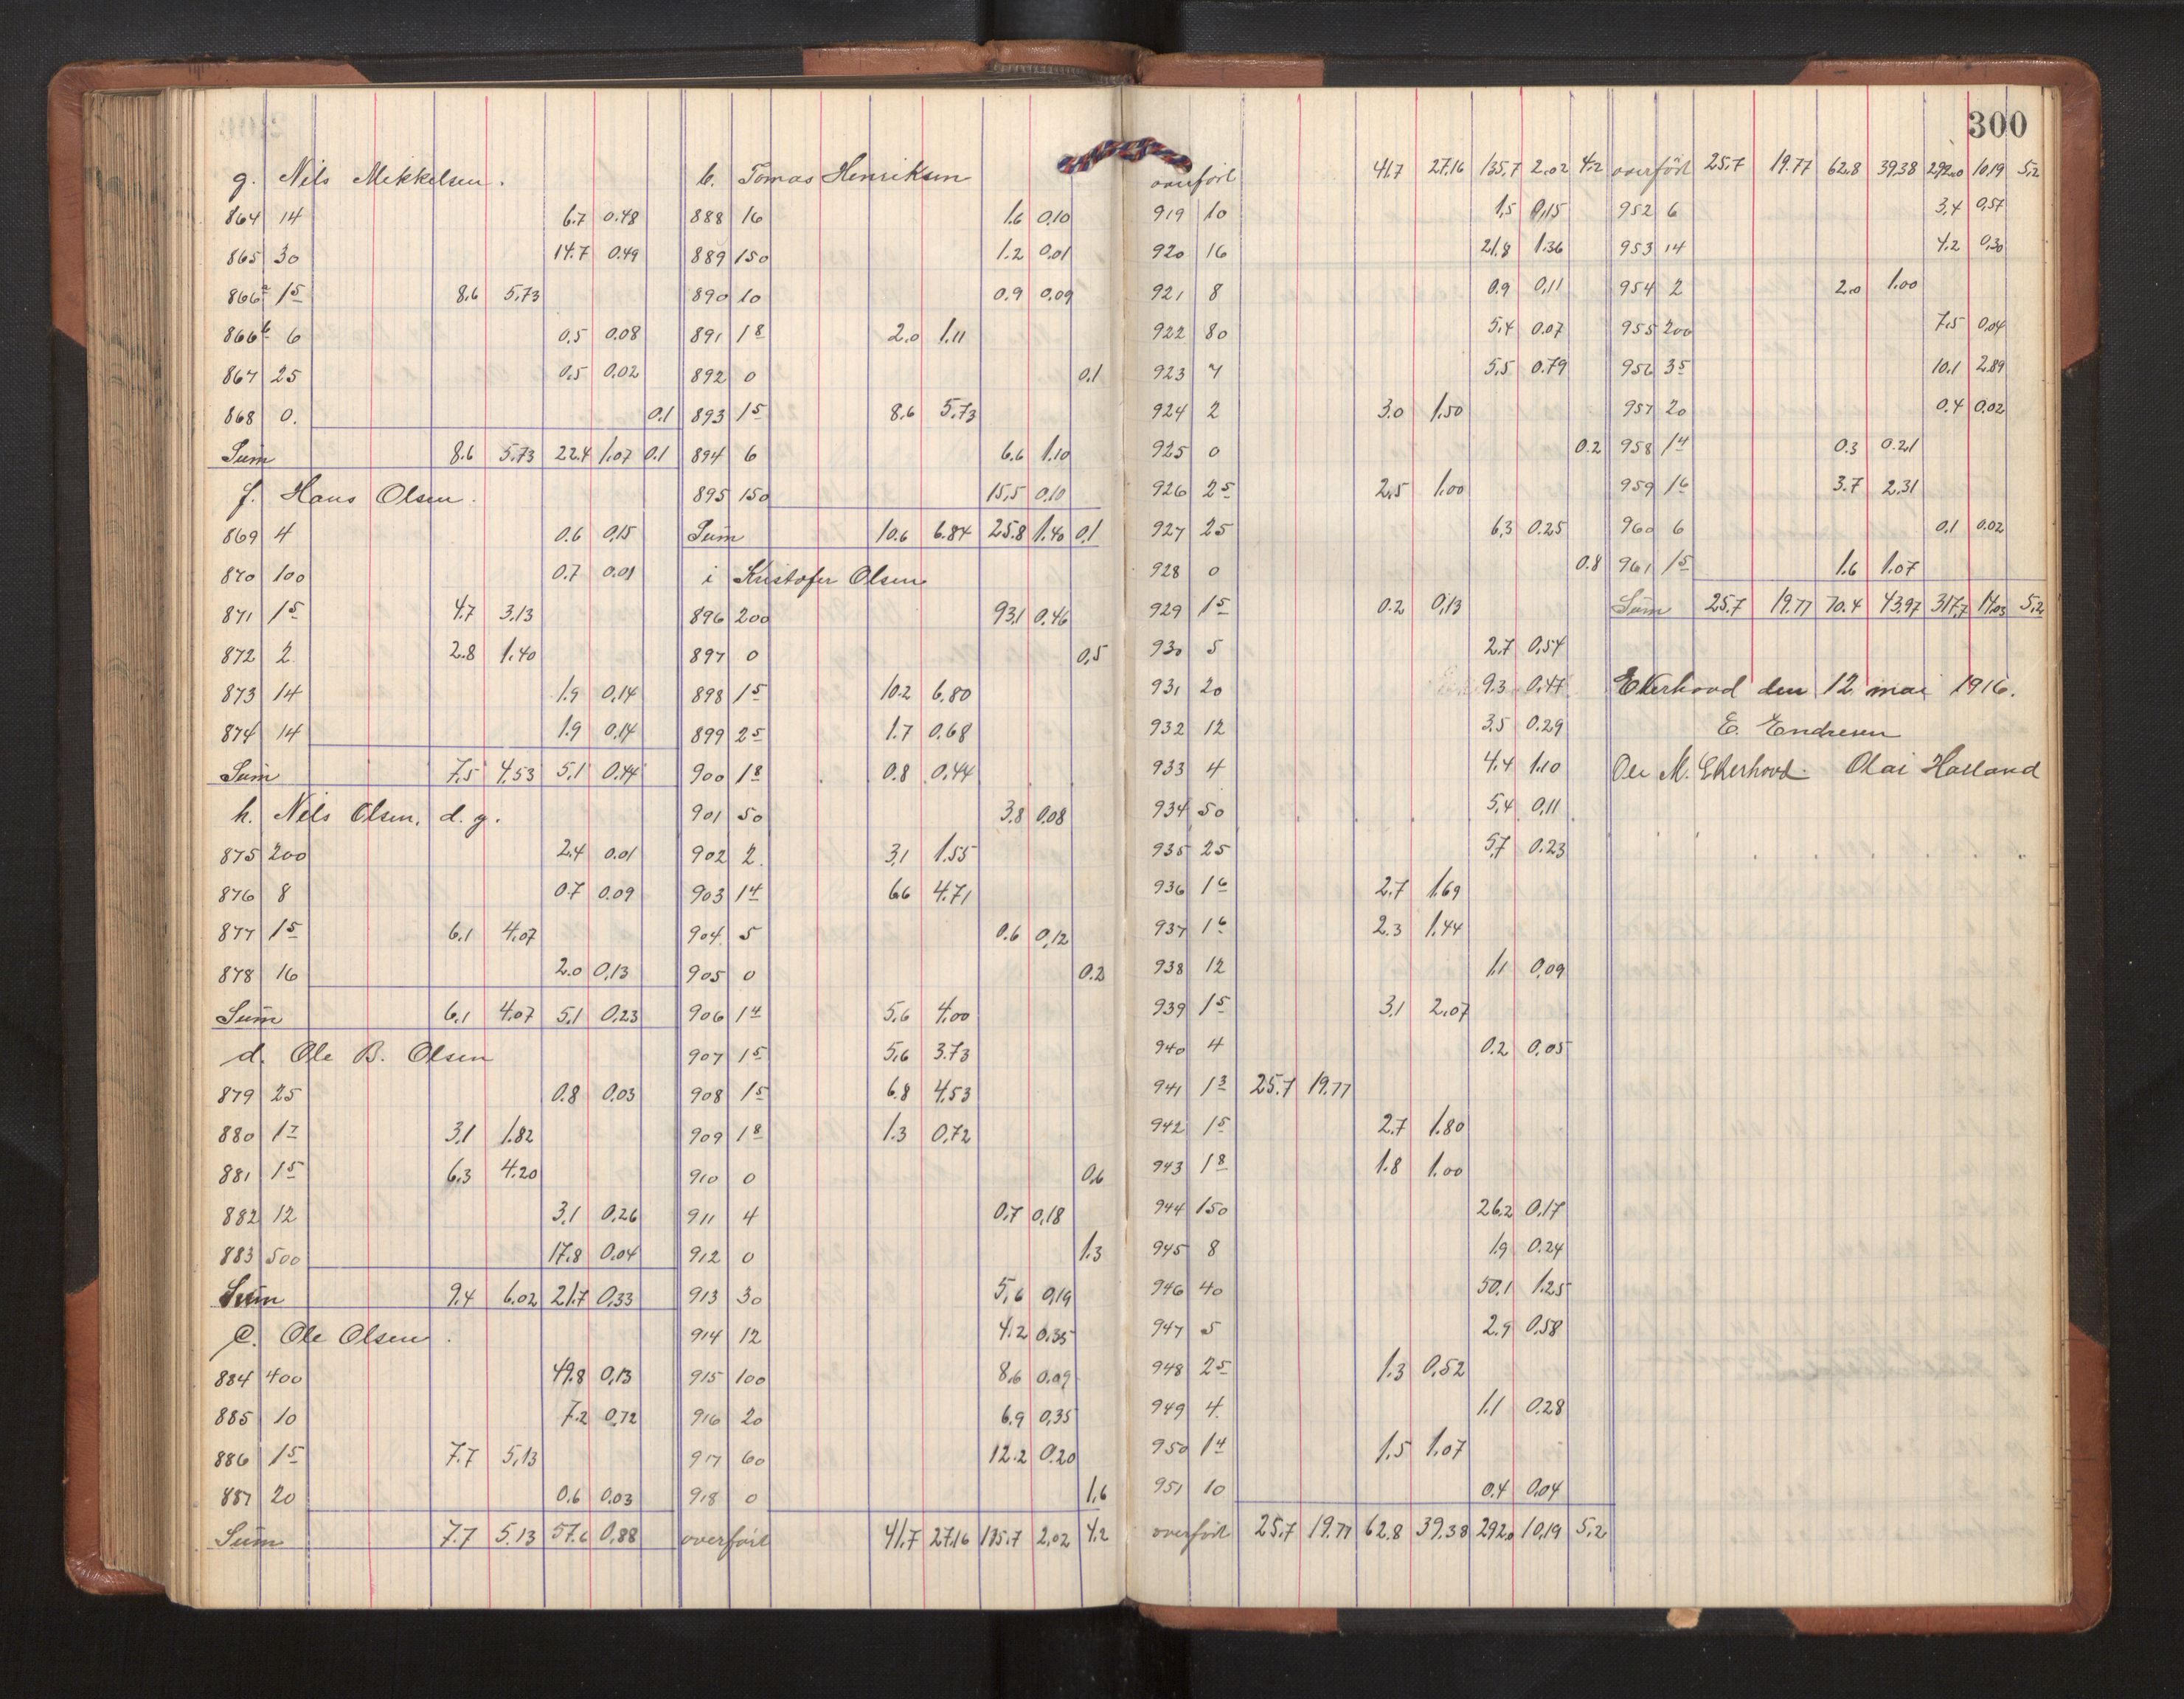 g. Nils Mikkelsen.
864 14 6.7 0.48
865 30 14.7 0.49
866a 1 5 8.6 5.73
866b 6 0.5 0.08
867 25 0.5 0.02
868 0. 0.1
Sum 8.6 5.73 22.4 1.07 0.1
f. Hans Olsen.
869 4 0.6 0.15
870 100 0.7 0.01
871 1 5 4.7 3.13
872 2 2.8 1.40
873 14 1.9 0.14
874 14 1.9 0.14
Sum 7.5 4.53 5.1 0.44
h. Nils Olsen. d. g.
875 200 2.4 0.01
876 8 0.7 0.09
877 1 5 6.1 4.07
878 16 2.0 0.13
Sum 6.1 4.07 5.1 0.23
d. Ole B. Olsen
879 25 0.8 0.03
880 1 7 3.1 1.82
881 1 5 6.3 4.20
882 12 3.1 0.26
883 500 17.8 0.04
Sum 9.4 6.02 21.7 0.33
C. Ole Olsen.
884 400 49.8 0.13
885 10 7.2 0.72
886 1 5 7.7 5.13
887 20 0.6 0.03
Sum 7.7 5.13 57.6 0.88
b. Tomas Henriksen
888 16 1.6 0.10
889 150 1.2 0.01
890 10 0.9 0.09
891 1 8 2.0 1.11
892 0 0.1
893 1 5 8.6 5.73
894 6 6.6 1.10
895 150 15.5 0.10
Sum 10.6 6.84 25.8 1.40 0.1
i Kristofer Olsen
896 200 93.1 0.46
897 0 0.5
898 1 5 10.2 6.80
899 2 5 1.7 0.68
900 1 8 0.8 0.44
901 50 3.8 0.08
902 2. 3.1 1.55
903 1 4 6.6 4.71
904 5 0.6 0.12
905 0 0.2
906 1 4 5.6 4.00
907 1 5 5.6 3.73
908 1 5 6.8 4.53
909 1 8 1.3 0.72
910 0 0.6
911 4 0.7 0.18
912 0 1.3
913 30 5.6 0.19
914 12 4.2 0.35
915 100 8.6 0.09
916 20 6.9 0.35
917 60 12.2 0.20
918 0 1.6
overført 41.7 27.16 135.7 2.02 4.2
300
overført 41.7 27.16 135.7 2.02 4.2
919 10 1.5 0.15
920 16 21.8 1.36
921 8 0.9 0.11
922 80 5.4 0.07
923 7 5.5 0.79
924 2 3.0 1.50
925 0 0.2
926 2 5 2.5 1.00
927 25 6.3 0.25
928 0 0.8
929 1 5 0.2 0.13
930 5 2.7 0.54
931 20 9.3 0.47
932 12 3.5 0.29
933 4 4.4 1.10
934 50 5.4 0.11
935 25 5.7 0.23
936 1 6 2.7 1.69
937 1 6 2.3 1.44
938 12 1.1 0.09
939 1 5 3.1 2.07
940 4 0.2 0.05
941 1 3 25.7 19.77
942 1 5 2.7 1.80
943 1 8 1.8 1.00
944 150 26.2 0.17
945 8 1.9 0.24
946 40 50.1 1.25
947 5 2.9 0.58
948 2 5 1.3 0.52
949 4. 1.1 0.28
950 1 4 1.5 1.07
951 10 0.4 0.04
overført 25.7 19.77 62.8 39.38 292.0 10.19 5.2
overført 25.7 19.77 62.8 39.38 292.0 10.19 5.2
952 6 3.4 0.57
953 14 4.2 0.30
954 2 2.0 1.00
955 200 7.5 0.04
956 3 5 10.1 2.89
957 20 0.4 0.02
958 1 4 0.3 0.21
959 1 6 3.7 2.31
960 6 0.1 0.02
961 1 5 1.6 1.07
Sum 25.7 19.77 70.4 43.97 317.7 14.03 5.2
Ekerhovd den 12 mai 1916.
E. Endresen
Ole M. Ekerhovd. Olai Halland